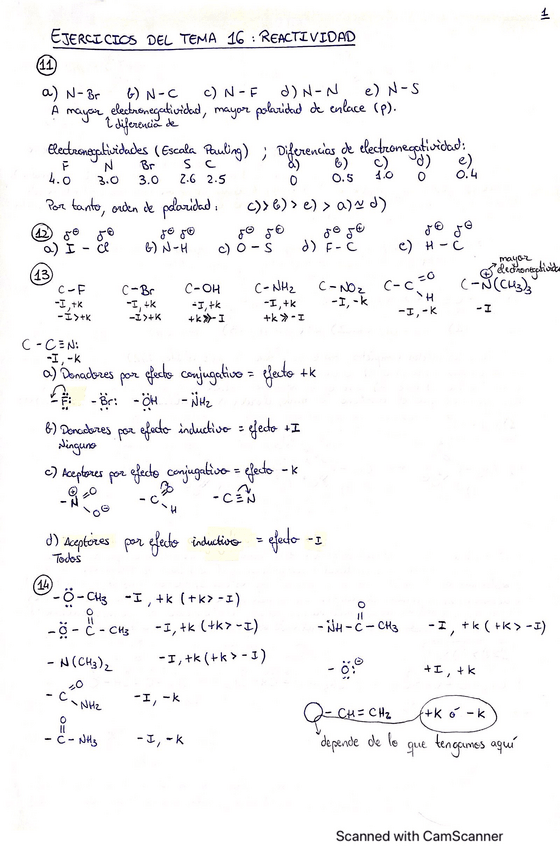 1
EJERCICIOS DEL TEMA 16: REACTIVIDAD
11
a) N-Br b) N-C c) N-F d) N-N e) N-S
A mayor electronegatividad, mayor polaridad de enlace (p).
↑ diferencia de
Electronegatividades (Escala Pauling) ; Diferencias de electronegatividad:
F N Br S C a) b) c) d) e)
4.0 3.0 3.0 2.6 2.5 0 0.5 1.0 0 0.4
Por tanto, orden de polaridad: c) > b) > e) > a) ≃ d)
12 δ⊕ δ⊖ δ⊖ δ⊕ δ⊖ δ⊕ δ⊖ δ⊕ δ⊕ δ⊖
a) I - Cl b) N-H c) O-S d) F-C e) H-C
13
mayor
electronegatividad
C-F C-Br C-OH C-NH₂ C-NO₂ C-C=O H C-N⊕(CH₃)₃
-I,+k -I,+k -I,+k -I,+k -I,-k -I,-k -I
-I>+k -I>+k +k≫-I +k≫-I
C-C≡N:
-I,-k
a) Donadores por efecto conjugativo = efecto +k
-F: -Br: -OH -NH₂
b) Donadores por efecto inductivo = efecto +I
Ninguno
c) Aceptores por efecto conjugativo = efecto -k
-N⊕ =O O⊖ -C =O H -C≡N
d) Aceptores por efecto inductivo = efecto -I
Todos
14
-O-CH₃ -I, +k (+k > -I)
-O-C(=O)-CH₃ -I, +k (+k > -I) -NH-C(=O)-CH₃ -I, +k (+k > -I)
-N(CH₃)₂ -I, +k (+k > -I) -O:⊖ +I, +k
-C=O NH₂ -I, -k
-CH=CH₂ +k ó -k
-C(=O)-NH₃ -I, -k
depende de lo que tengamos aquí
Scanned with CamScanner